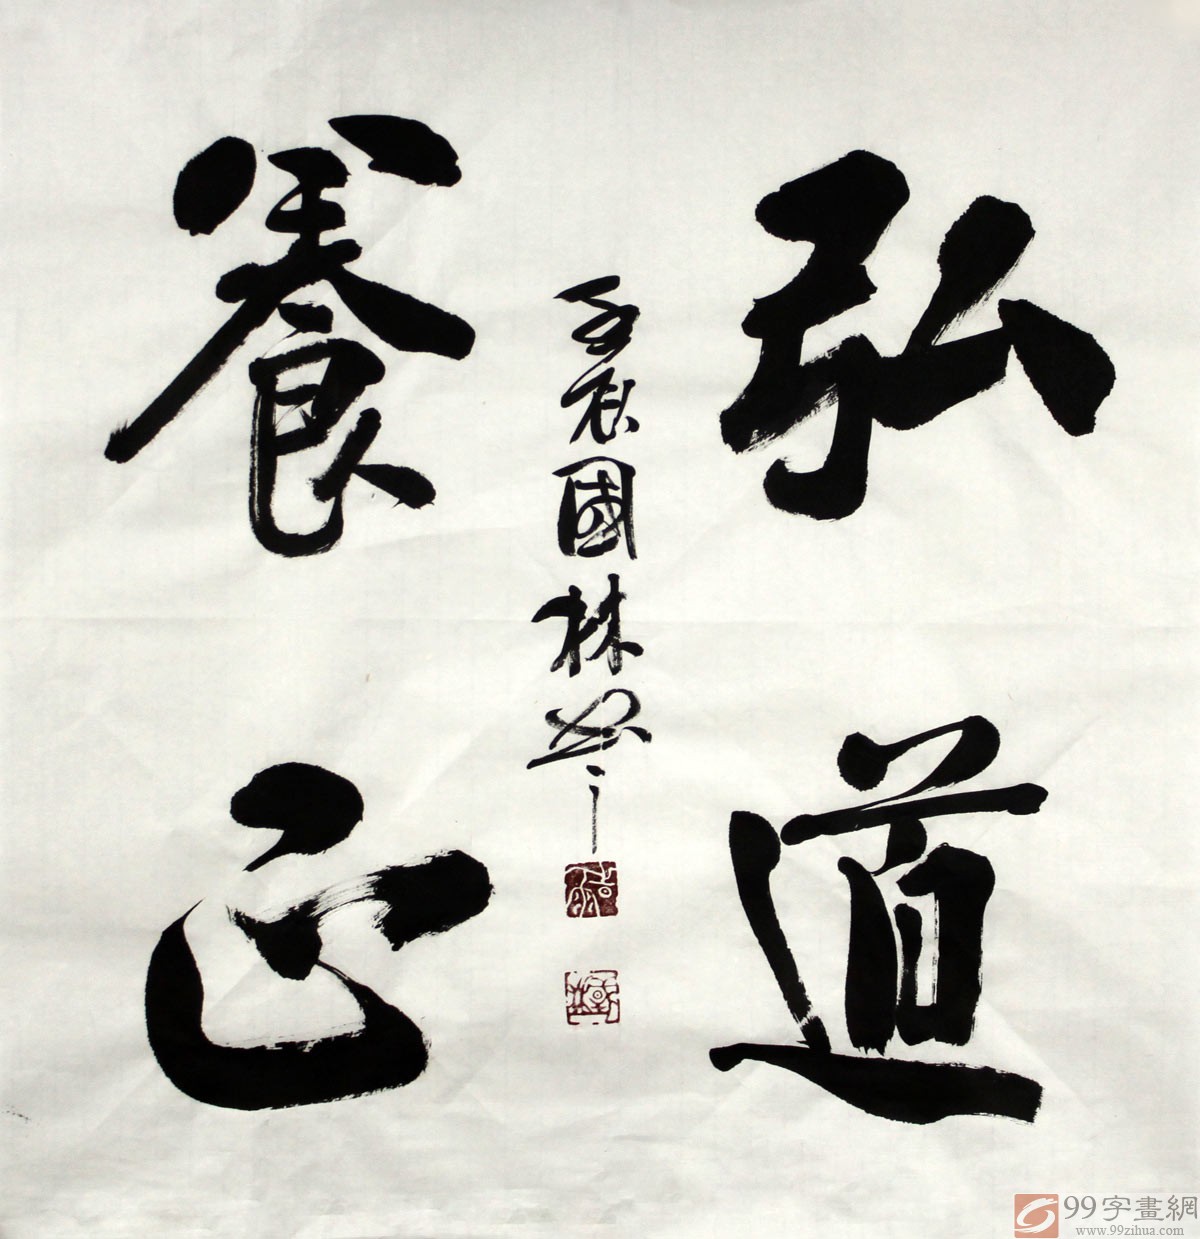 弘道
養正
國林
99字畫網
www.99zihua.com